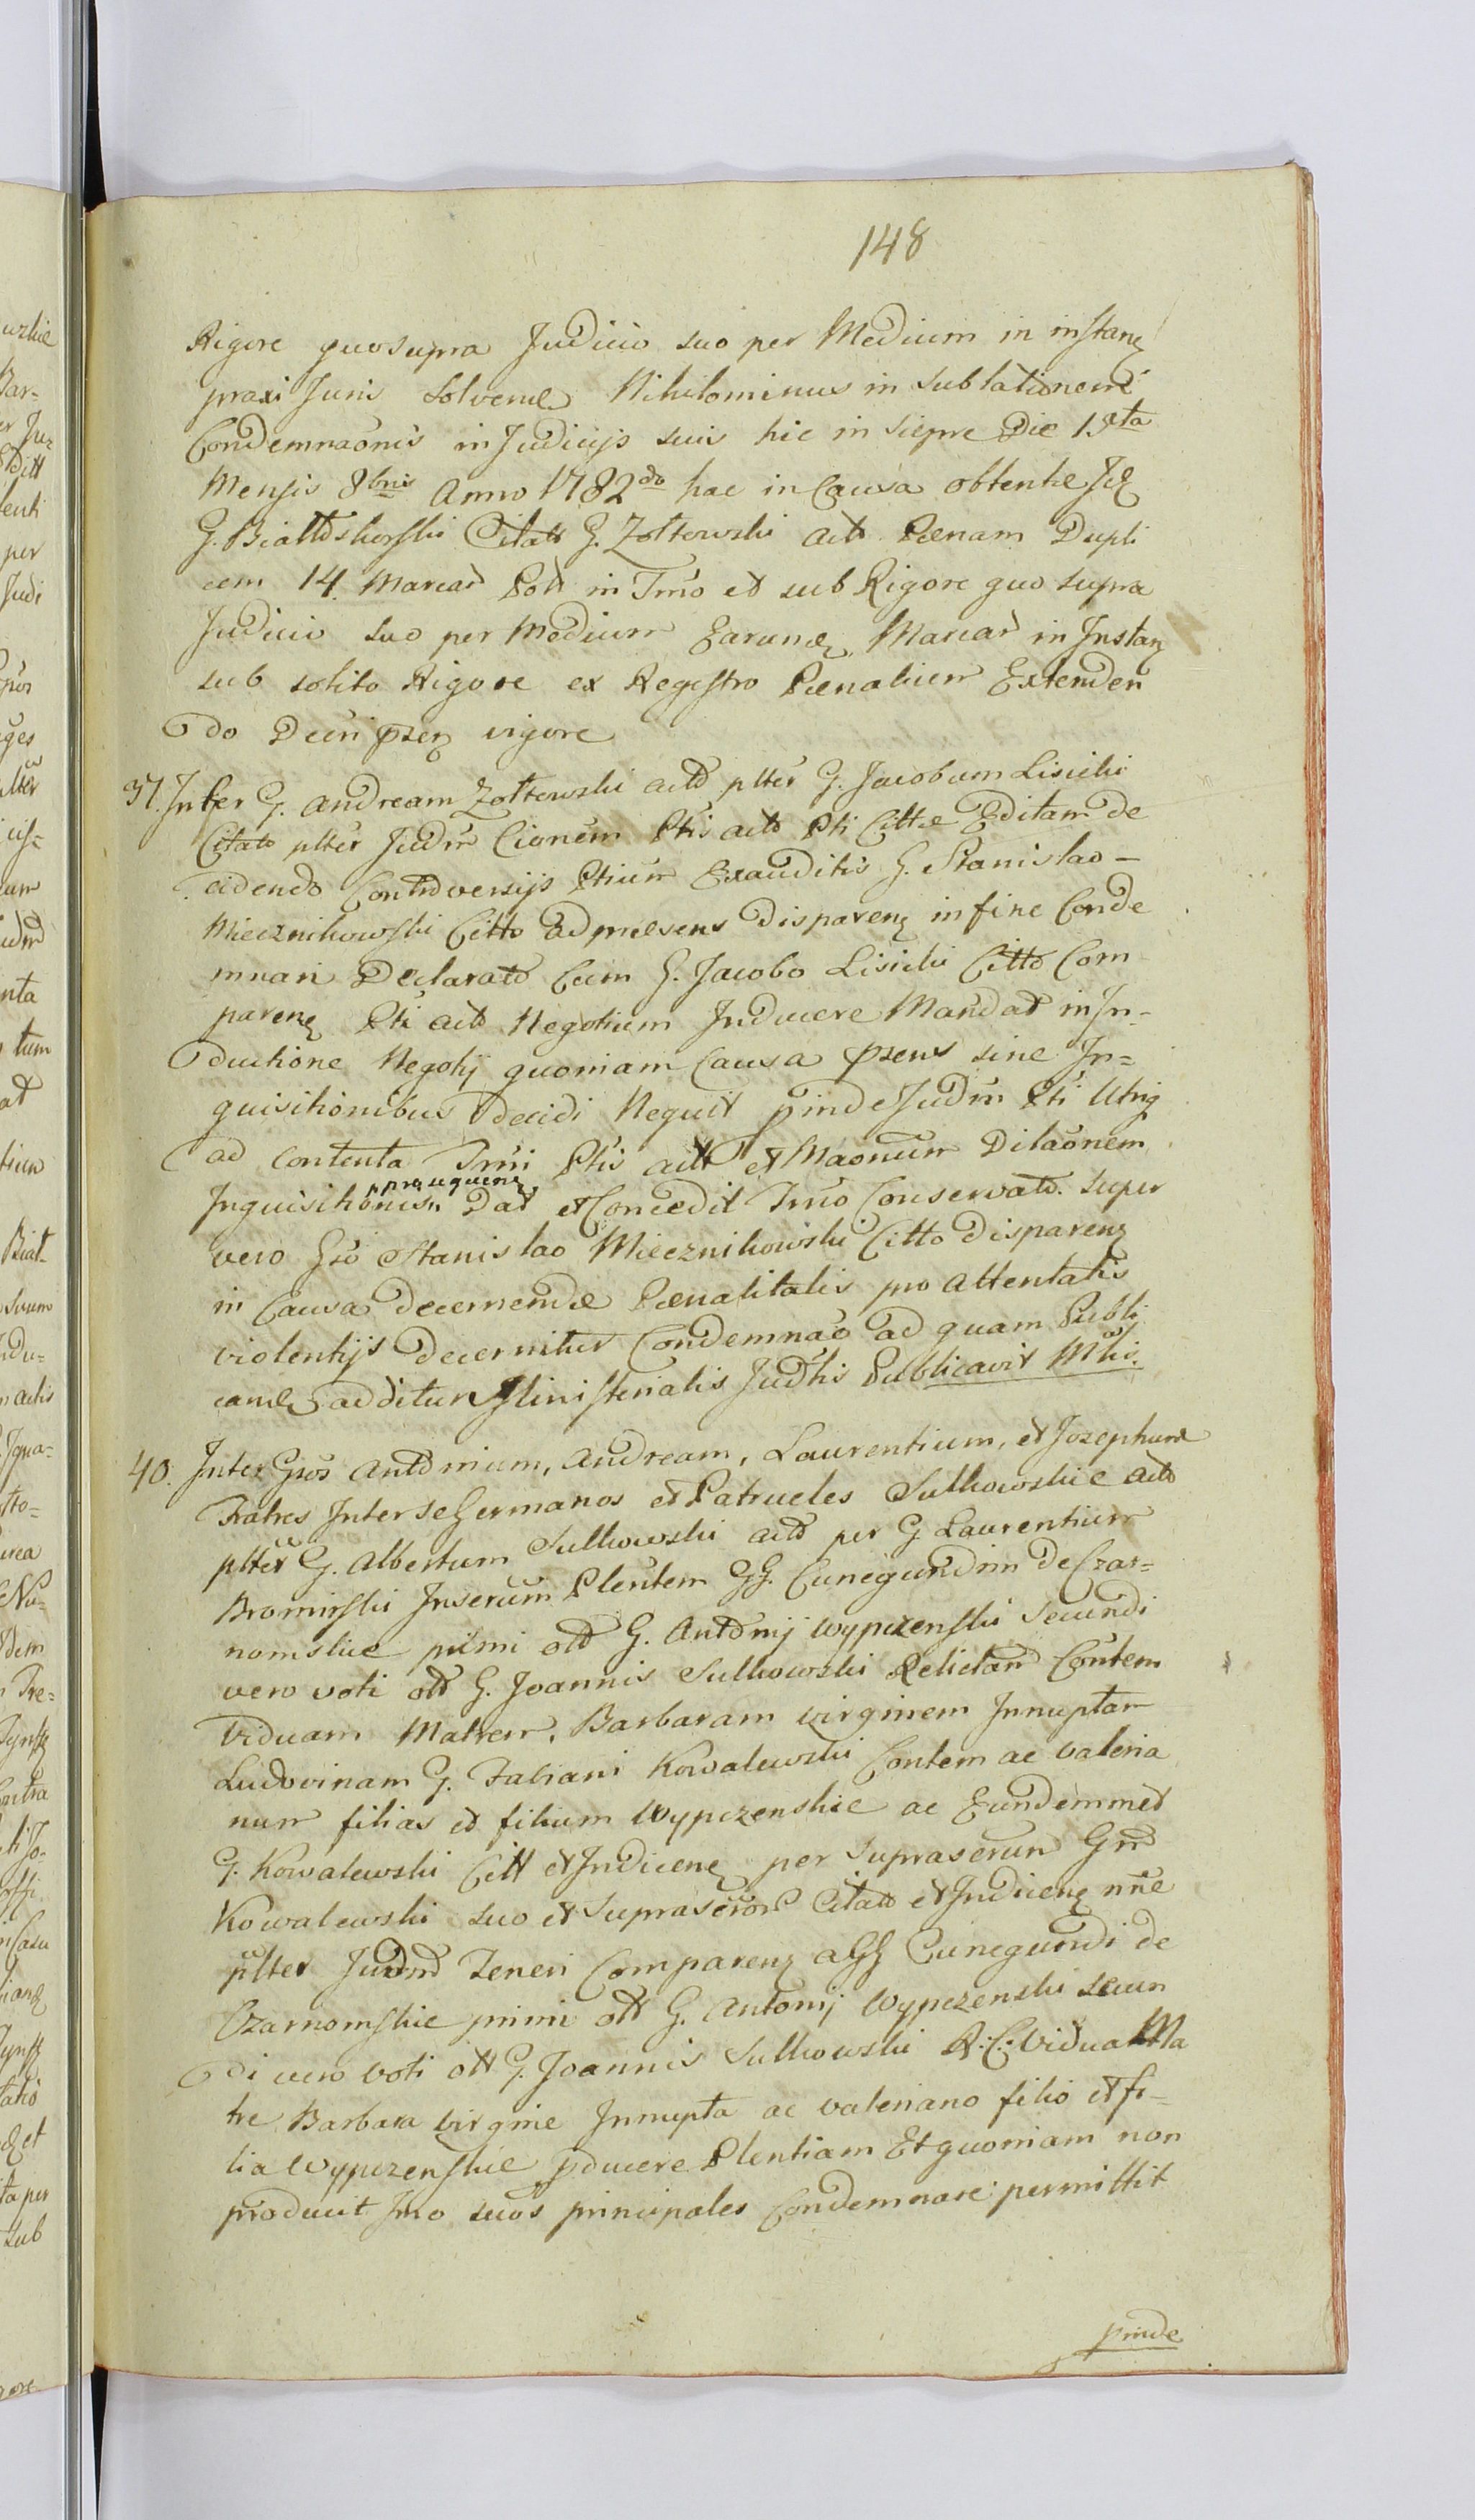 148
Rigore quo supra Judicio suo per Medium in instanz
praxi Juris Solvend Nihilominus in sublationem
Condemnaonis in Judicijs suis hic in Siepre Die 19ta
Mensis 8bris Anno 1782do hac in Causa obtentæ
G. Białłoskorski Citatt G. Zołtowski actt Pænam Dupli
cem 14 Marcar Poll in Tmo et sub Rigore quo supra
Judicio suo per Medium Earund Marcar in Instanz
sub solito Rigore ex Regestro Pænalium Extenden
do Decri pnsenz vigore
37. Inter G. Andream Zołtowski actt plter G. Jacobum Lisicki
Citato plter Judm Cionem Ptis actt Pti Cittæ Editam De
cidendo Controversijs Ptium Exauditis G. Stanislao
Miecznikowski Citto ad præsens Disparenz in fine Conde
mnari Declarato Cum G. Jacobo Lisicki Citto Com
parenz Pti actt Negotium Inducere Mandat in In-
ductione Negotij quoniam Causa pnsens sine In=
quisitionibus Decidi Nequit pinde Judm Pti Utriq
ad contenta Tmi Ptis actt et Maonum Dilaonem
Inquisitonis Dat et Concedit Tmo Conservato. Super
vero Gso Stanislao Miecznikowski Citto Disparenz
in Causa Decernendæ Pænalitatis pro attentatis
violentijs Decernitur Condemnao ad quam Publi
cand additur Ministerialis Judtis Publicavit Mlis.
40. Inter Gsos Antonium, Andream, Laurentium, et Jozephum
Fratres Inter se Germanos et Patrueles Sulkowskie actt
plter G. Albertum Sulkowski actt per G. Laurentium
Bromirski Inserum Plentem GG. Cunegundim de Czar=
nomskie primi ott G. Antonij Wypczenski Secundi
vero voti ott G. Joannis Sulkowski Relictam Contem
Viduam Matrem, Barbaram virginem Innuptam
Ludovinam G. Fabiani Kowalewski Contem ac Valeria
num filias et filium Wypczenskie ac Eundemmet
G. Kowalewski Citt et Indicenz per Supraserum Gm
Kowalewski suo et Supraseror Citato et Indicenz nne
plter Judm Teneri Comparenz a GG Cunegundi de
Czarnomskie primi ott G. Antonij Wypczenski secun
di vero voti ott G. Joannis Sulkowski R: C: Vidua Ma
tre Barbara virgine Innupta ac Valeriano filio et fi-
lia Wypczenskie pducere Plentiam Et quoniam non
producit Imo suos principales Condemnare permittit
pinde